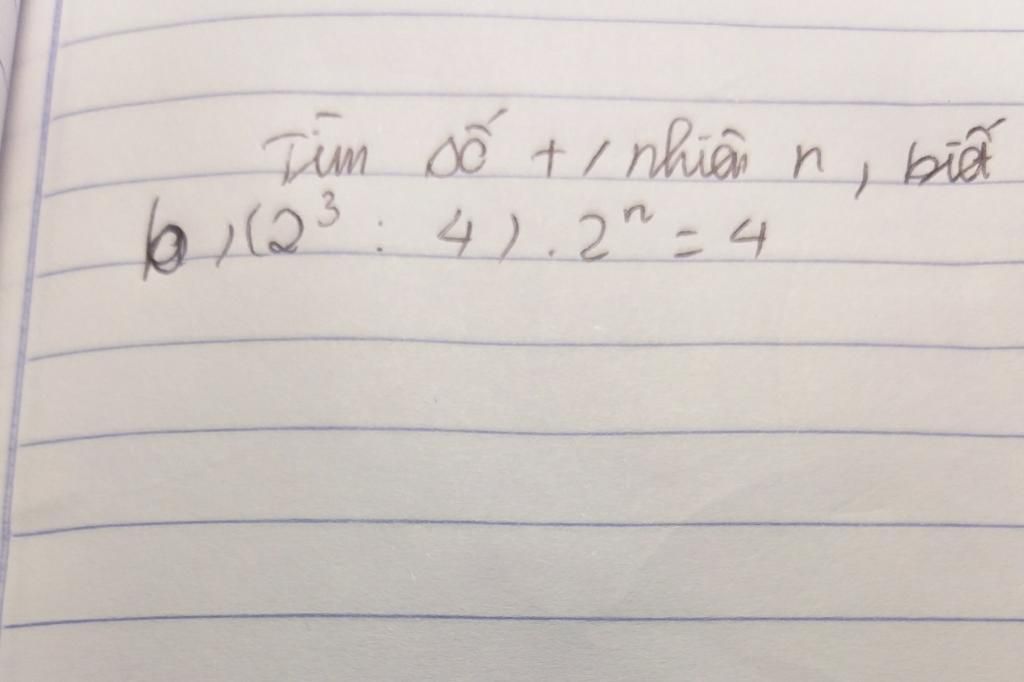 Tìm số t/nhiên n, biết
b,(2³ : 4) . 2ⁿ = 4